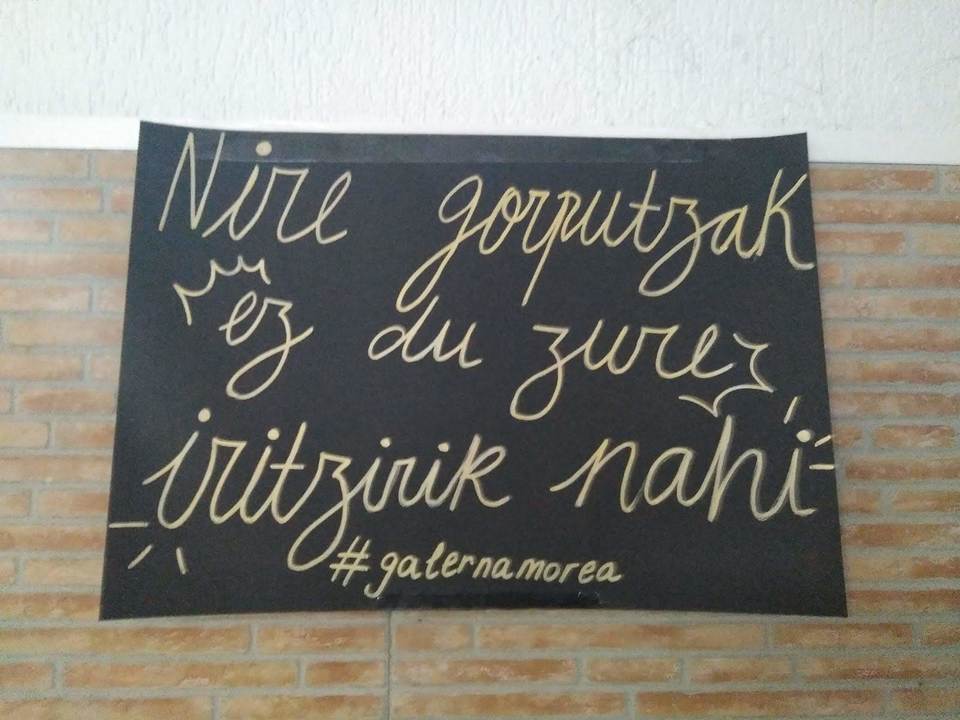 Nire gorputzak
ez du zure
iritzirik nahi
#galernamorea